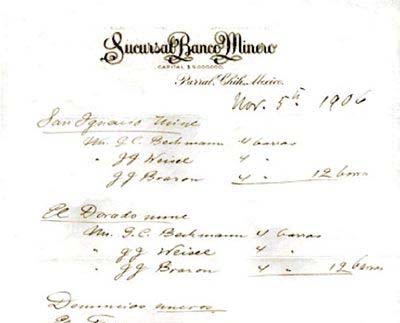 Sucursal Banco Minero
CAPITAL $5,000,000.
Parral, Chih. Mexico.
Nov. 5th 1906
San Ignacio mine
Mr. G.C. Beckmann 4 barras
" J J Weisel 4 "
J J Braron 4 " 12 barras
El Dorado mine
Mr. G.C. Beckmann 4 barras
" J J Weisel 4 "
" J J Braron 4 " 12 barras
Denuncios nuevos